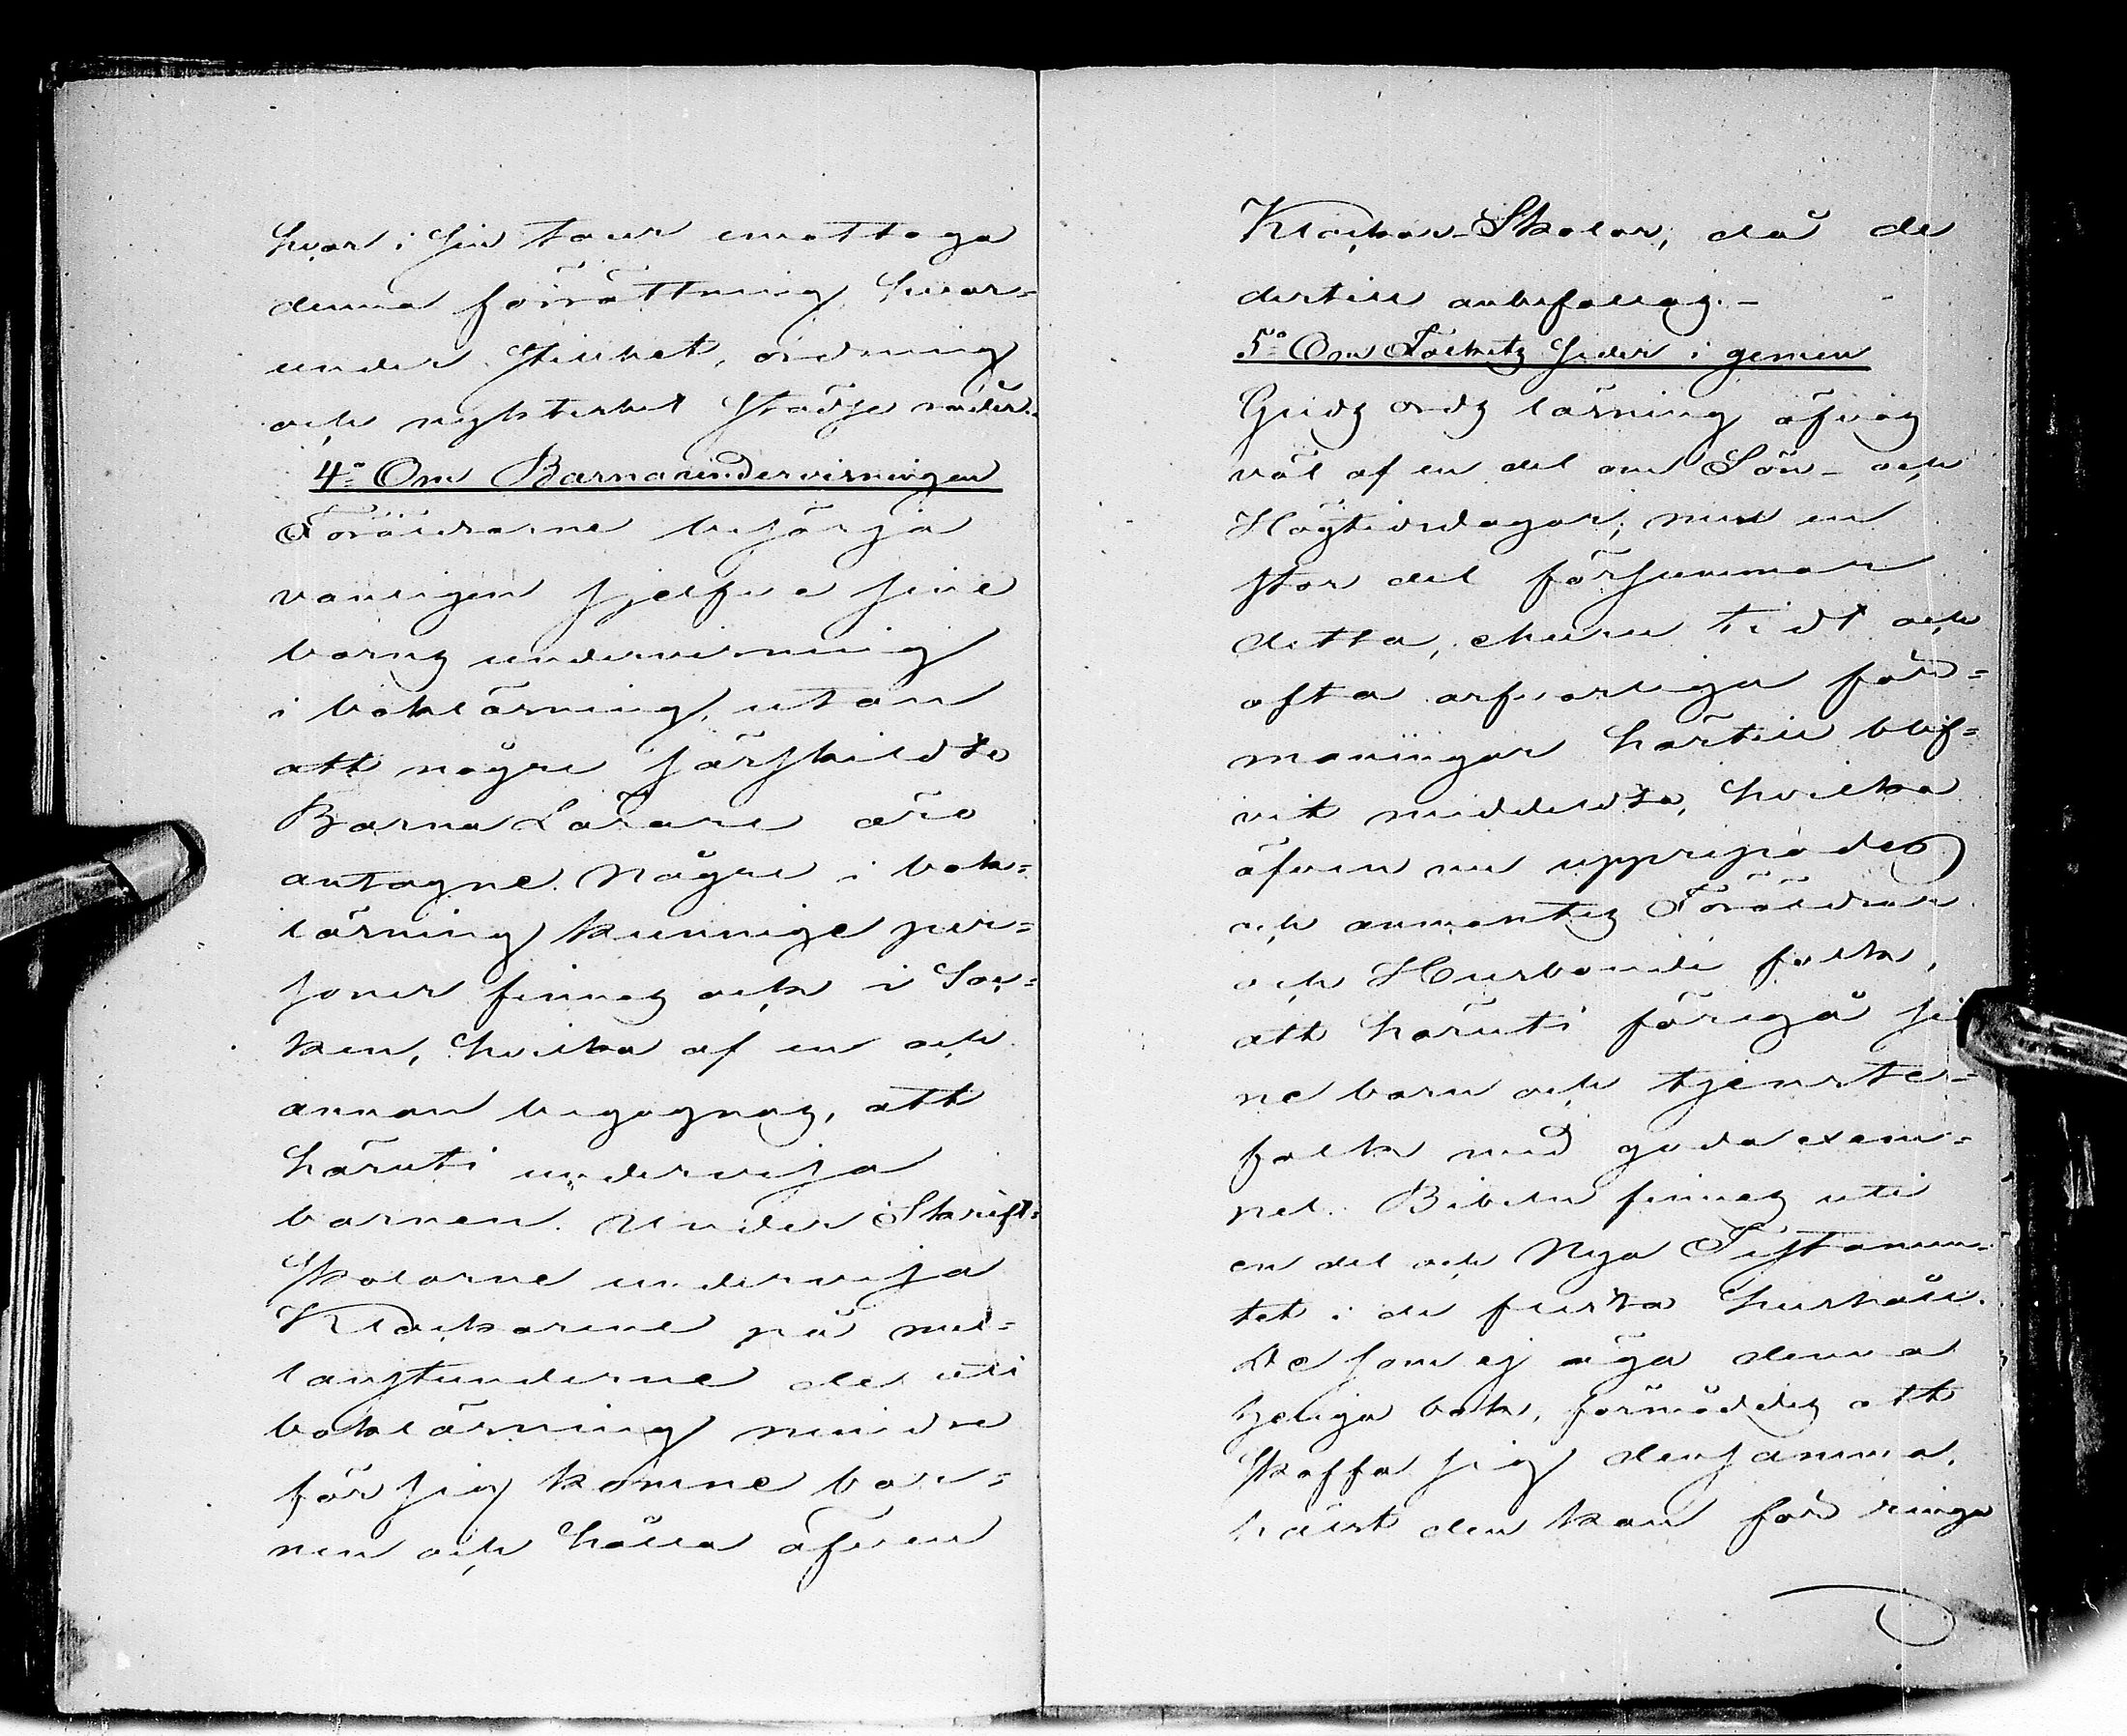 hvar i sin tour emottaga
denna förrättning, hvar-
under stillhet, ordning
och nyckterhet städse råder.
4:o Om Barnaundervisningen
Föräldrarne besörja
vanligen sjelfve sine
barns undervisning
i boklärning, utan
att någre särskildte
Barna Lärare äro
antagne. Någre i bok-
lärning kunnige per-
soner finnas ock i Soc-
ken, hvilka af en och
annan begagnas, att
häruti undervisa
barnen. Under Skrift-
skolorne undervisa
Klockarne på mel-
lanstunderne de uti
boklärning mindre
försig komne bar-
nen och hålla äfven
Klockar-Skolor, då de
dertill anbefallas.-
5:o Om Folkets seder i gemen
Guds ords läsning öfvas
väl af en del om Sön- och
Högtidsdagar, men en
stor del försummar
detta, ehuru tidt och
ofta alfvarliga för-
maningar härtill blif-
vit meddeldte, hvilka
äfven nu upprepades
och anmantes Föräldrar
och Husbonde folk,
att häruti föregå si-
ne barn och tjenste-
folk med goda exem-
pel. Bibeln finnes uti
en del och Nya Testamen-
tet i de flesta hushåll.
De som ej äga denna
heliga bok, förmåddes att
skaffa sig densamma,
hälst den kan för ringa